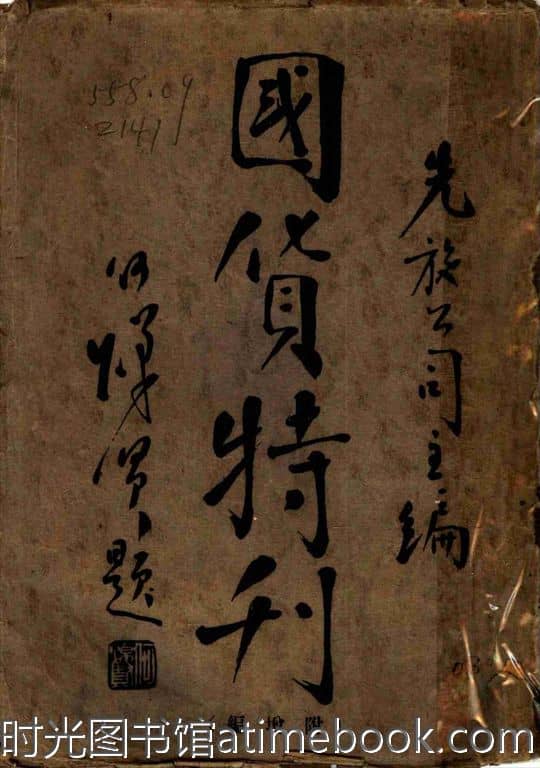 先施公司主編
國貨特刊
何
題
558.09
時光图书馆atimebook.com